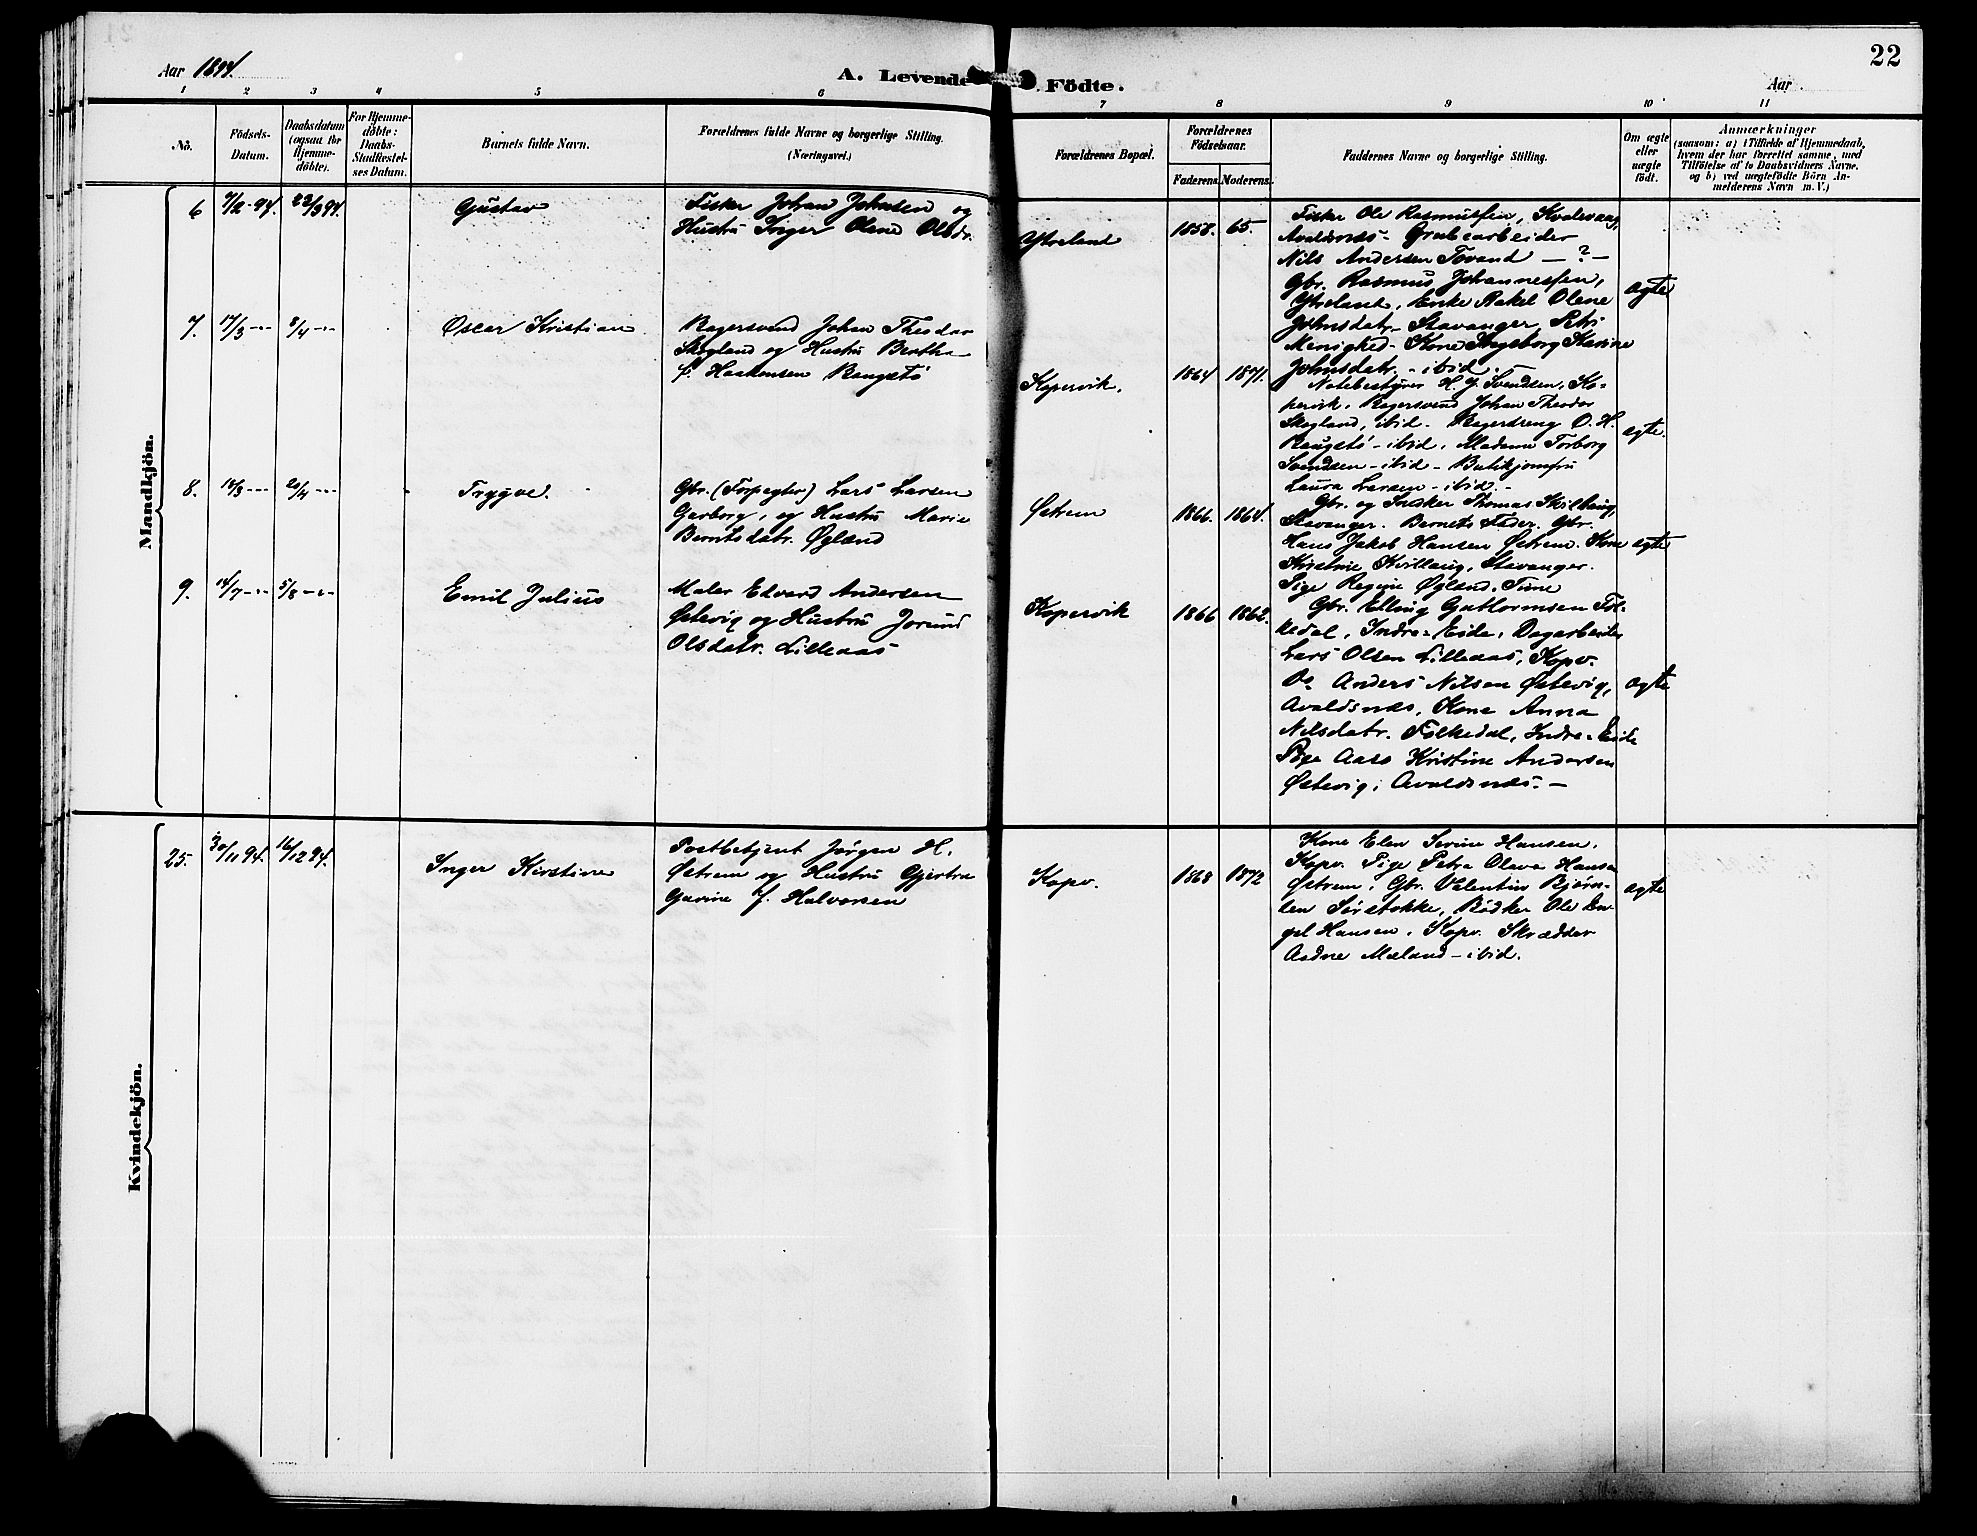 22
Aar 1894.
A. Levende Födte.
Aar
1 2 3 4 5 6 7 8 9 10 11
No.
Födsels-
Datum.
Daabsdatum
(ogsaa for
Hjemme-
döbte).
For Hjemme-
döbte:
Daabs-
Stadfæstel-
ses Datum.
Barnets fulde Navn.
Forældrenes fulde Navne og borgerlige Stilling.
(Næringsvei.)
Forældrenes Bopæl.
Forældrenes
Födselsaar.
Faderens.
Moderens.
Faddernes Navne og borgerlige Stilling.
Om ægte
eller
uægte
födt.
Anmærkninger
(saasom: a) i Tilfælde af Hjemmedaab,
hvem der har forrettet samme, med
Tilföielse af to Daabsvidners Navne,
og b) ved uægtefödte Börn An-
melderens Navn m. V.)
Mandkjön.
6
7/2-94.
22/3 94.
Gustav
Fisker Johan Johnsen og
Hustru Inger Olene Olsdr.
Ytreland
1858.
65.
Fisker Ole Rasmussen, Kvalevaag,
Avaldsnæs - Grubearbeider
Nils Andersen Tovand - ? -
Gbr. Rasmus Johannessen,
Ytreland, Enke Rakel Olene
Johnsdatr. Stavanger, Petri
Menighed - Kone Ingeborg Karine
Johnsdatr. - ibid. -
ægte
7.
17/3 -"-
8/4 -"-
Oscar Kristian
Bagersvend Johan Theodor
Skogland og Hustru Bertha
f. Haakonsen Baugstø
Kopervik.
1864
1871.
Notebestyrer H. J. Svendsen, Ko-
pervik. Bagersvend Johan Theodor
Skogland, ibid. Bagerdreng O. H.
Baugstø - ibid. Madame Torborg
Svendsen - ibid - Butikjomfru
Laura Larsen - ibid. -
ægte.
8.
18/3 ---
20/4 ---
Trygve.
Gbr. (Forpagter) Lars Larsen
Garborg, og Hustru Marie
Berntsdatr. Øglænd
Østrem
1866.
1864.
Gbr. og Snekker Thomas
Stavanger. Barnets Fader. Gbr.
Hans Jakob Hansen Østrem. Kone
Kirstine Stavanger.
Pige Regine Øglend, Time
ægte
9.
14/7 -"-
5/8 -"-
Emil Julius
Maler Edvard Andersen
Østevig og Hustru Jorund
Olsdatr. Lilleaas
Kopervik
1866
1862.
Gbr. Elling Guttormsen Fol-
kedal, Indre-Eide, Dagarbeider
Lars Olsen Lilleaas, Kopv.
Do. Anders Nilsen Østevig,
Avaldsnæs, Kone Anna
Nilsdatr. Folkedal, Indre-Eide
Pige Aasa Kristine Andersen
Østevig, Avaldsnæs. -
ægte
Kvindekjön.
25.
30/11 94.
16/12 94.
Inger Kirstine
Postbetjent Jørgen H.
Østrem og Hustru Gjertra
Gurine f. Halvorsen
Kopv.
1868
1872
Kone Elen Serine Hansen,
Kopv. Pige Petra Oleva Hansen
Østrem, Gbr. Valentin Bjørn-
sen Sørstokke, Bødker Ole En-
gel Hansen, Kopv. Skrædder
Andne Mæland - ibid.
ægte